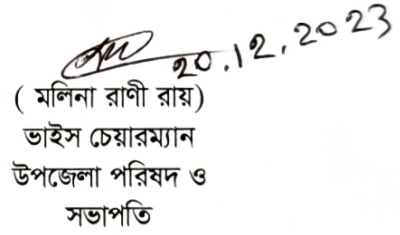 20.12.2023
( মলিনা রাণী রায়)
ভাইস চেয়ারম্যান
উপজেলা পরিষদ ও
সভাপতি